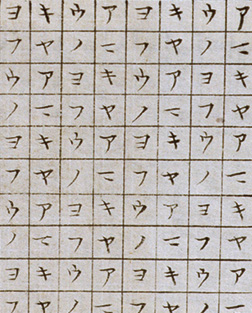 アニキヤアニキヤアニ
ウノヨフウノヨフウノ
キヤアニキヤアニキヤ
ヨフウノヨフウノヨフ
アニキヤアニキヤアニ
ウノヨフウノヨフウノ
キヤアニキヤアニキヤ
ヨフウノヨフウノヨフ